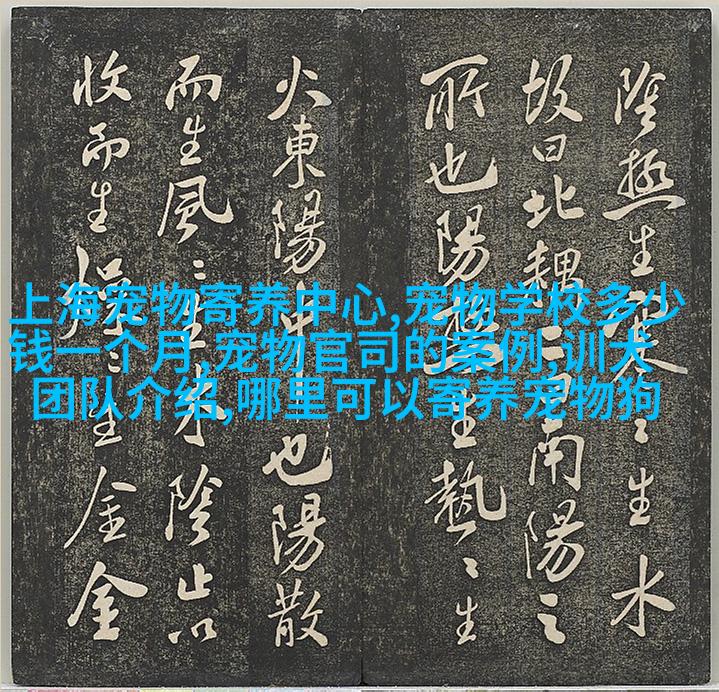 上海宠物寄养中心,宠物学校多少
钱一个月,宠物官司的案例,训犬
团队介绍,哪里可以寄养宠物狗
陰極生寒〻生水
故曰北耦二曰南陽之
所也陽極生熱〻生
火東陽中也陽散
而生風〻生木陰止以
收而生燥〻生金金